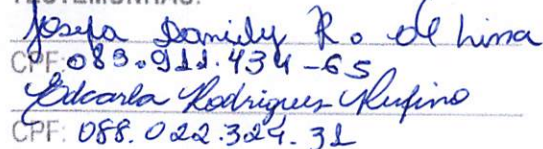 TESTEMUNHAS:
Josefa Daniely R. de Lima
CPF: 089.911.434-65
Edcarla Rodrigues Rufino
CPF: 088.022.324.31